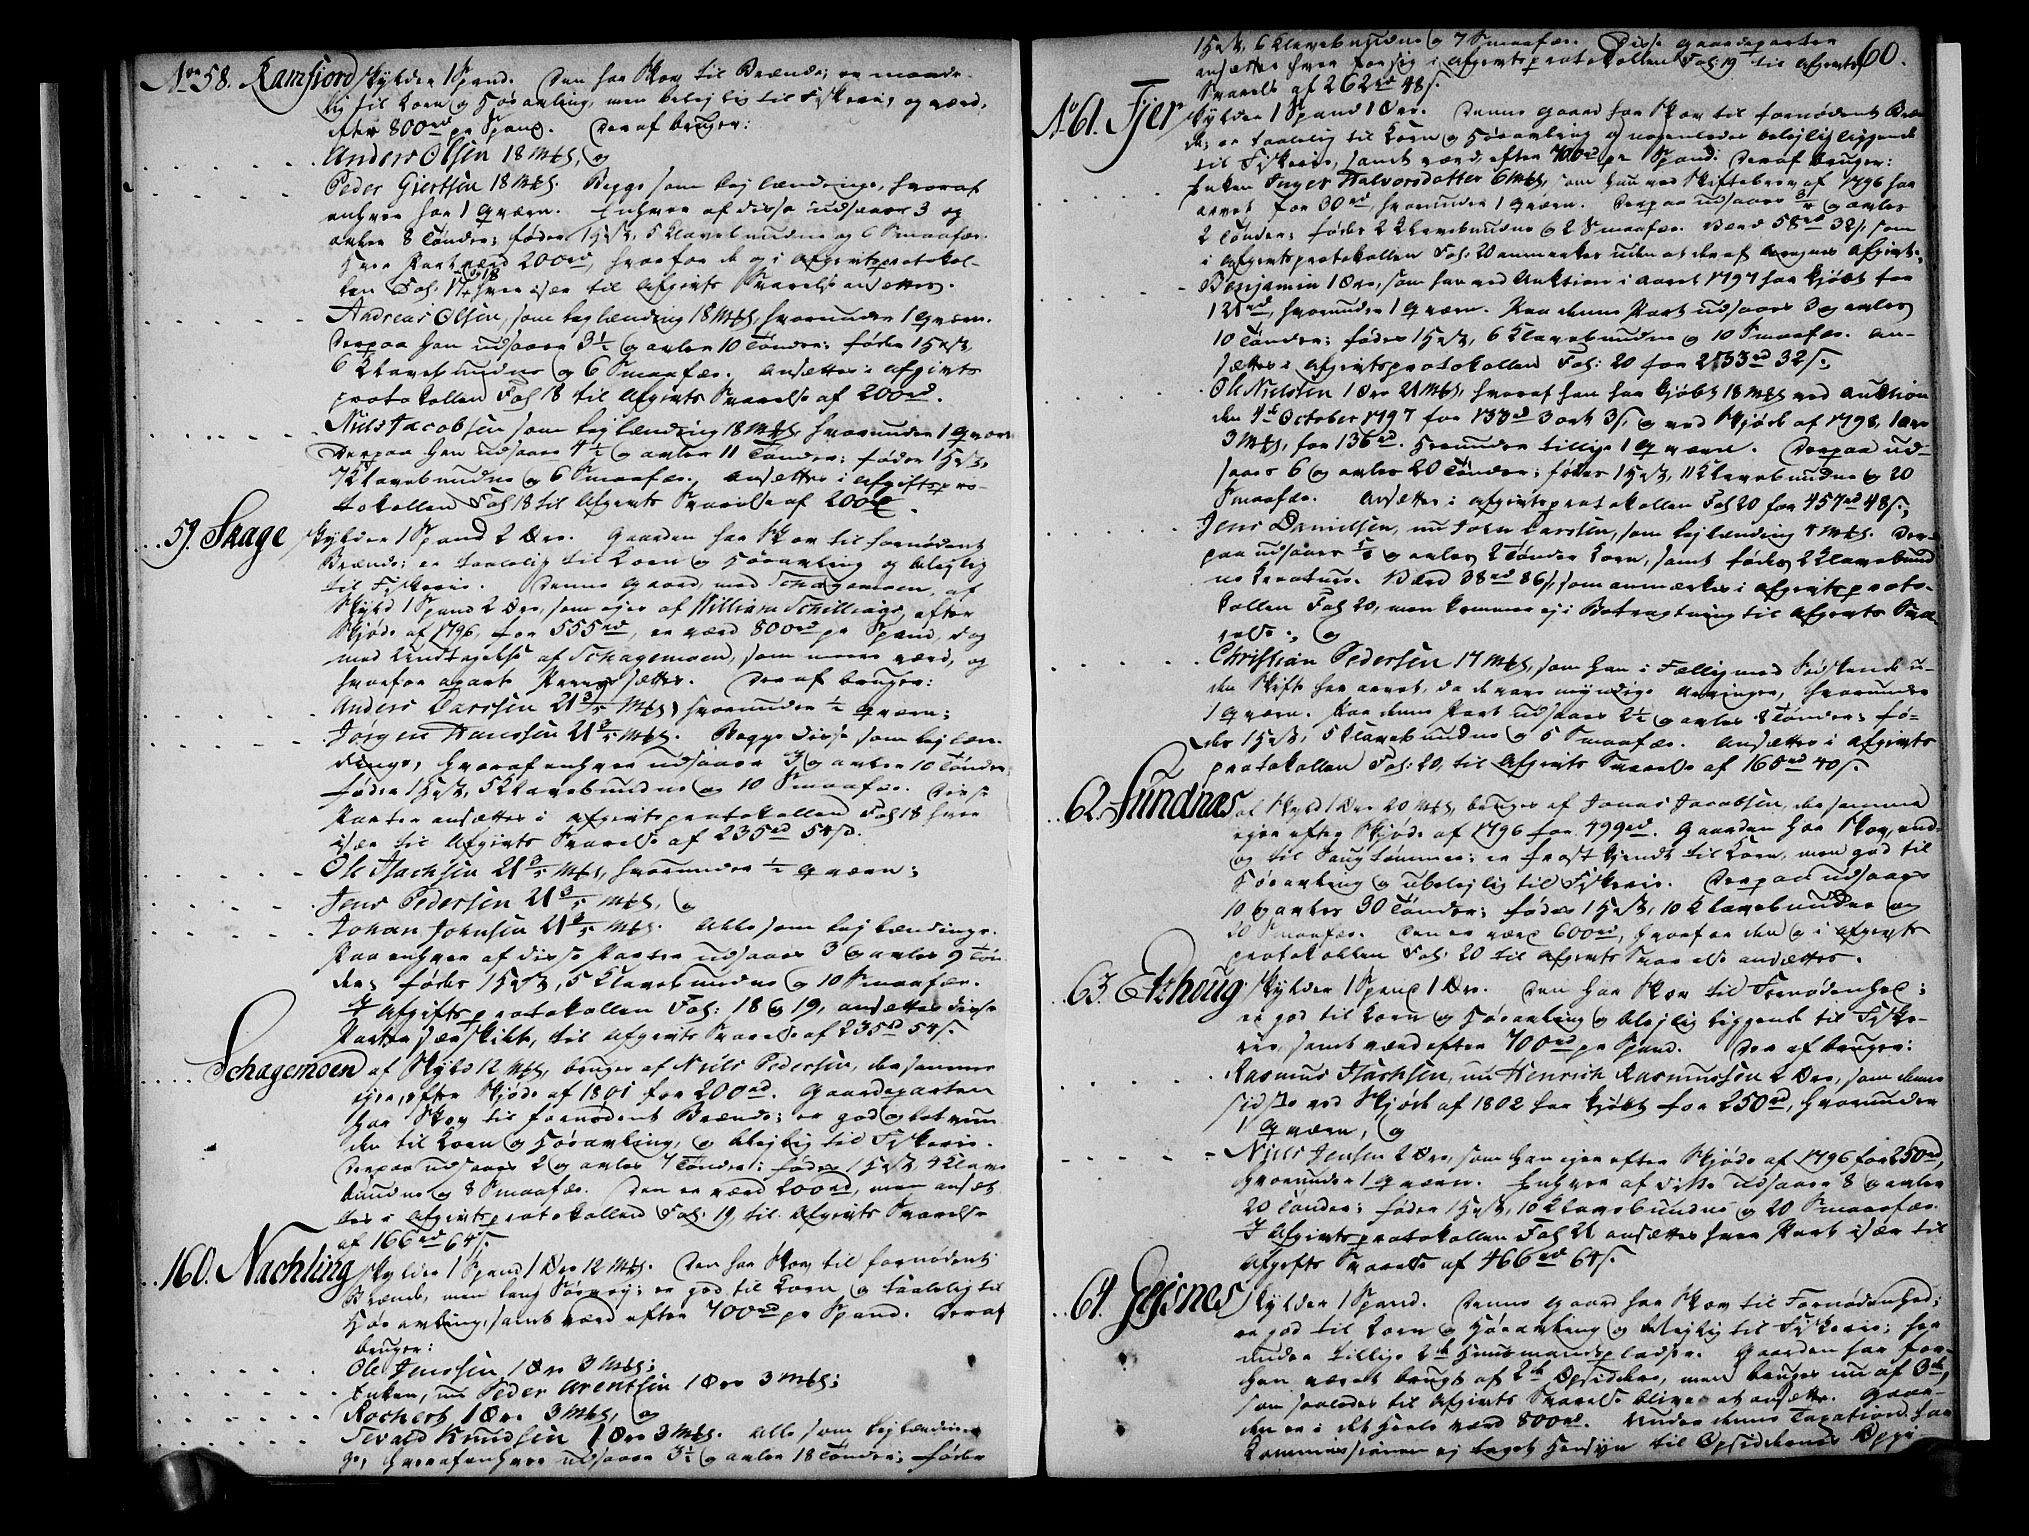 No 58. Ramfiord skylder 1 Spand. Den har Skov til Brænde; er maade-
lig til Korn og Høeavling, men belejlig til Fiskerie, og værd,
efter 800rd pr Spand. Deraf bruger:
Anders Olsen 18 Mkl, og
Peder Giertsen 18 Mkl. Begge som bejlændinge, hvoraf
enhver har 1 Qværn. Enhver af disse udsaaer 3 og
avler 8 Tønder; føder 1 Hest, 5 Klavebundne og 6 Smaafæe.
Hver Part værd 200rd, hvorfor de og i Afgiftsprotokol-
len Fol: 17 og 18 hver især til Afgifts Svarelse ansættes.
Andreas Olsen, som bejlænding 18 Mkl, hvorunder 1 Qværn.
Derpaa han udsaaer 3½ og avler 10 Tønder; føder 1 Hest,
6 Klavebundne og 6 Smaafæe. Ansættes i Afgifts
protokollen Fol 18 til Afgifts Svarelse af 200rd.
Niels Jacobsen som bejlænding 18 Mkl, hvorunder 1 Qværn
Derpaa han udsaaer 4½ og avler 11 Tønder; føder 1 Hest,
7 Klavebundne og 6 Smaafæe, ansættes i Afgiftspro-
tokollen Fol 18 til Afgifts Svarelse af 200rd.
59. Skage skylder 1 Spand 2 Øre. Gaarden har Skov til fornødent
Brænde; er taalelig til Korn og Høeavling og belejlig
til Fiskerie. Denne Gaard, med Schagemoen, af
Skyld 1 Spand 2 Øre, som ejes af William Schillings, efter
Skjøde af 1796, for 555rd, er værd 800rd pr Spand, dog
med Undtagelse af Schagemoen, som mere værd, og
hvorfor apart sættes. Deraf bruger:
Anders Larssen 21 3/5 Mkl, hvorunder ½ Qværn;
Jørgen Hanssen 21 3/5 Mkl. Begge disse som bejlæn-
dinge, hvoraf enhver udsaaer 3 og avler 10 Tønder,
føder 1 Hest, 5 Klavebundne og 10 Smaafæe. Disse
Parter ansættes i Afgiftsprotokollen Fol 18 hver
især til Afgifts Svarelse af 235rd 54s.
Ole Isachsen 21 3/5 Mkl, hvorunder ½ Qværn;
Jens Pedersen 21 3/5 Mkl, og
Johan Johnsen 21 3/5 Mkl. Alle som bejlændinge.
Paa enhver af disse Parter udsaaes 3 og avles 9 Tøn-
der, fødes 1 Hest, 5 Klavebundne og 10 Smaafæe.
I Afgiftsprotokollen Fol: 18 og 19, ansættes disse
Parter særskilt, til Afgifts Svarelse af 235rd 54s.
Schagemoen af Skyld 12 Mkl, bruges af Niels Pedersen, der samme
ejer, efter Skjøde af 1801 for 200rd. Gaardeparten
har Skov til fornødent Brænde; er god og letvun
den til Korn og Høeavling, og belejlig til Fiskerie.
Derpaa udsaaes 2 og avles 7 Tønder; fødes 1 Hest, 4 Klave
bundne og 8 Smaafæe. Den er værd 200rd, men ansæt
tes i Afgiftsprotokollen Fol: 19, til Afgifts Svarelse
af 166rd 64s.
160. Nachling skylder 1 Spand 1 Øre 12 Mkl. Den har Skov til fornødent
Brænde, men lang er god til Korn, og taalelig til
Høeavling, samt værd efter 700rd pr Spand. Deraf
bruger:
Ole Jenssen 1 Øre 3 Mkl;
Enken, nu Peder Arentsen 1 Øre 3 Mkl;
Rochert 1 Øre 3 Mkl, og
Tevald Knudsen 1 Øre 3 Mkl. Alle som bejlændin
ge, hvoraf enhver udsaaer 3½ og avler 18 Tønder; føder
60.
1 Hest, 6 Klavebundne og 7 Smaafæe. Disse Gaardeparter
ansættes hver for sig i Afgiftsprotokollen Fol: 19 til Afgifts
Svarelse af 262rd 48s.
No 61. Fjer skylder 1 Spand 1 Øre. Denne Gaard har Skov til fornødent Bræn
de; er taalelig til Korn og Høeavling og nogenledes belejlig liggende
til Fiskerie, samt værd efter 700rd pr Spand. Deraf bruger:
Enken Inger Halvorsdatter 6 Mkl, som hun ved Skiftebrev af 1796 har
arvet for 30rd, hvorunder 1 Qværn. Derpaa udsaaes 3/4 og avles
2 Tønder; fødes 2 Klavebundne og 2 Smaafæe. Værd 58rd 32s, som
i Afgiftsprotokollen Fol: 20 anmærkes uden at deraf Afgift.
Benjamin 1 Øre, som han ved Auktion i Aaret 1797 har kjøbt for
121rd, hvorunder 1 Qværn. Paa denne Part udsaaes 3 og avles
10 Tønder; fødes 1 Hest, 6 Klavebundne og 10 Smaafæe. An-
sættes i Afgiftsprotokollen Fol: 20 for 233rd 32s.
Ole Nielsen 1 Øre 21 Mkl, hvoraf han har kjøbt 18 Mkl ved Auktion
den 4de October 1797 for 133rd 3 ort 3s, og ved Skjøde af 1798, 1 Øre
3 Mkl, for 136rd. Herunder tillige 1 Qværn. Derpaa ud-
saaes 6 og avles 20 Tønder; fødes 1 Hest, 11 Klavebundne og 20
Smaafæe. Ansættes i Afgiftsprotokollen Fol 20 for 457rd 48s,
Jens Danielsen, nu John Larssen, som bejlænding 4 Mkl. Der-
paa udsaaes og avles 2 Tønder Korn, samt fødes 2 Klavebund
ne Creature. Værd 38rd 86s, som anmærkes i Afgiftsproto-
kollen Fol 20, men kommer ej i Betragtning til Afgifts Sva-
relse; og
Christian Pedersen 17 Mkl, som han i Fællig med Sødskende u-
den Skifte har arvet, da de vare myndige Arvinger, hvorunder
1 Qværn. Paa denne Part udsaaes 2½ og avles 8 Tønder; fø-
des 1 Hest, 5 Klavebundne og 5 Smaafæe. Ansættes i Afgifts
protokollen Fol: 20, til Afgifts Svarelse af 165rd 40s.
62. Sundnæs af Skyld 1 Øre 20 Mkl, bruges af Jonas Jacobsen, der samme
ejer efter Skjøde af 1796 for 499rd. Gaarden har Skov, end-
og til Saugtømmer; er frostkjendt til Korn, men god til
Høeavling og ubelejlig til Fiskerie. Derpaa udsaaes
10 og avles 30 Tønder; fødes 1 Hest, 10 Klavebundne og
20 Smaafæe. Den er værd 600rd, hvorfor den og i Afgifts
protokollen Fol: 20 til Afgifts Svarelse ansættes.
63. Etzhoug skylder 1 Spand 1 Øre. Den har Skov til Fornødenhed;
er god til Korn og Høeavling og belejlig liggende til Fiske-
rie, samt værd efter 700rd pr Spand. Deraf bruger:
Rasmus Isachsen, nu Henrich Rasmussen 2 Øre, som denne
sidste ved Skjøde af 1802 har kjøbt for 250rd, hvorunder
1 Qværn, og
Niels Jensen 2 Øre, som han ejer efter Skjøde af 1796 for 250rd,
hvorunder 1 Qværn. Enhver af disse udsaaer 8 og avler
20 Tønder; føder 1 Hest, 10 Klavebundne og 20 Smaafæe.
I Afgiftsprotokollen Fol 21 ansættes hver Part især til
Afgifts Svarelse af 466rd 64s.
64. Jejsnes skylder 1 Spand. Denne Gaard har Skov til Fornødenhed;
er god til Korn og Høeavling og belejlig til Fiskerie; her
under tillige 2de Huusmandspladser. Gaarden har for-
hen været brugt af 2de Opsiddere, men bruges nu af 3de,
som saaledes til Afgifts Svarelse bliver at ansætte. Gaar-
den er i det heele værd 800rd. Under denne Taxation har
Kommissionen ej taget Hensyn til Opsiddernes Oppi-